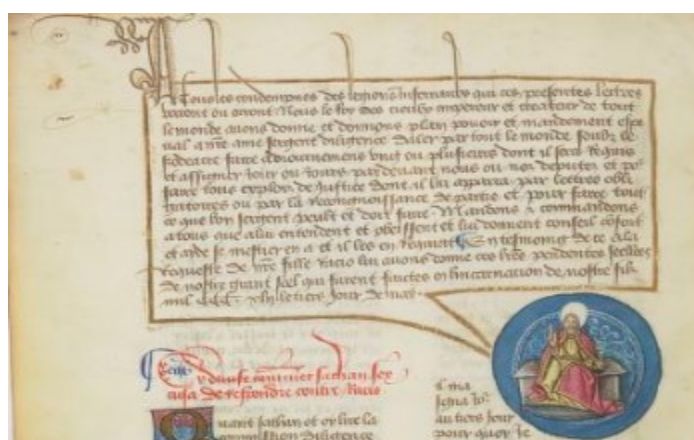 A Tous les condempnes des regions infernales qui ces presentes lectres
verront ou orront Nous le roy des cieulx empereur et createur de tout
le monde avons donne et donnons plein pouoir et mandement espe
cial a nre ame sergent diligence daler par tout le monde soubz le
faire adiournemens ung ou plusieurs dont il sera requis
et assigner iour ou iours par devant nous ou nos deputez et po
faire tous exploiz de iustice dont il lui apperra par lectres obli
gatoires ou par la recongnoissance de partie et pour faire tout
ce que bon sergent peult et doit faire Mandons & commandons
a tous que a lui entendent et obeissent et lui donnent conseil confort
et aide se mestier en a et il les en requiert En tesmoing de ce a la
requeste de nre fille Racio lui avons donne ces lres pendentes seellees
de nostre grant seel qui furent faictes en lincarnation de nostre filz
mil le tiers iour de
Cy
de respondre contre Racio
uant sathan et oy lire la
commission Diligence
il ma
au tiers iour
pour quoy Je